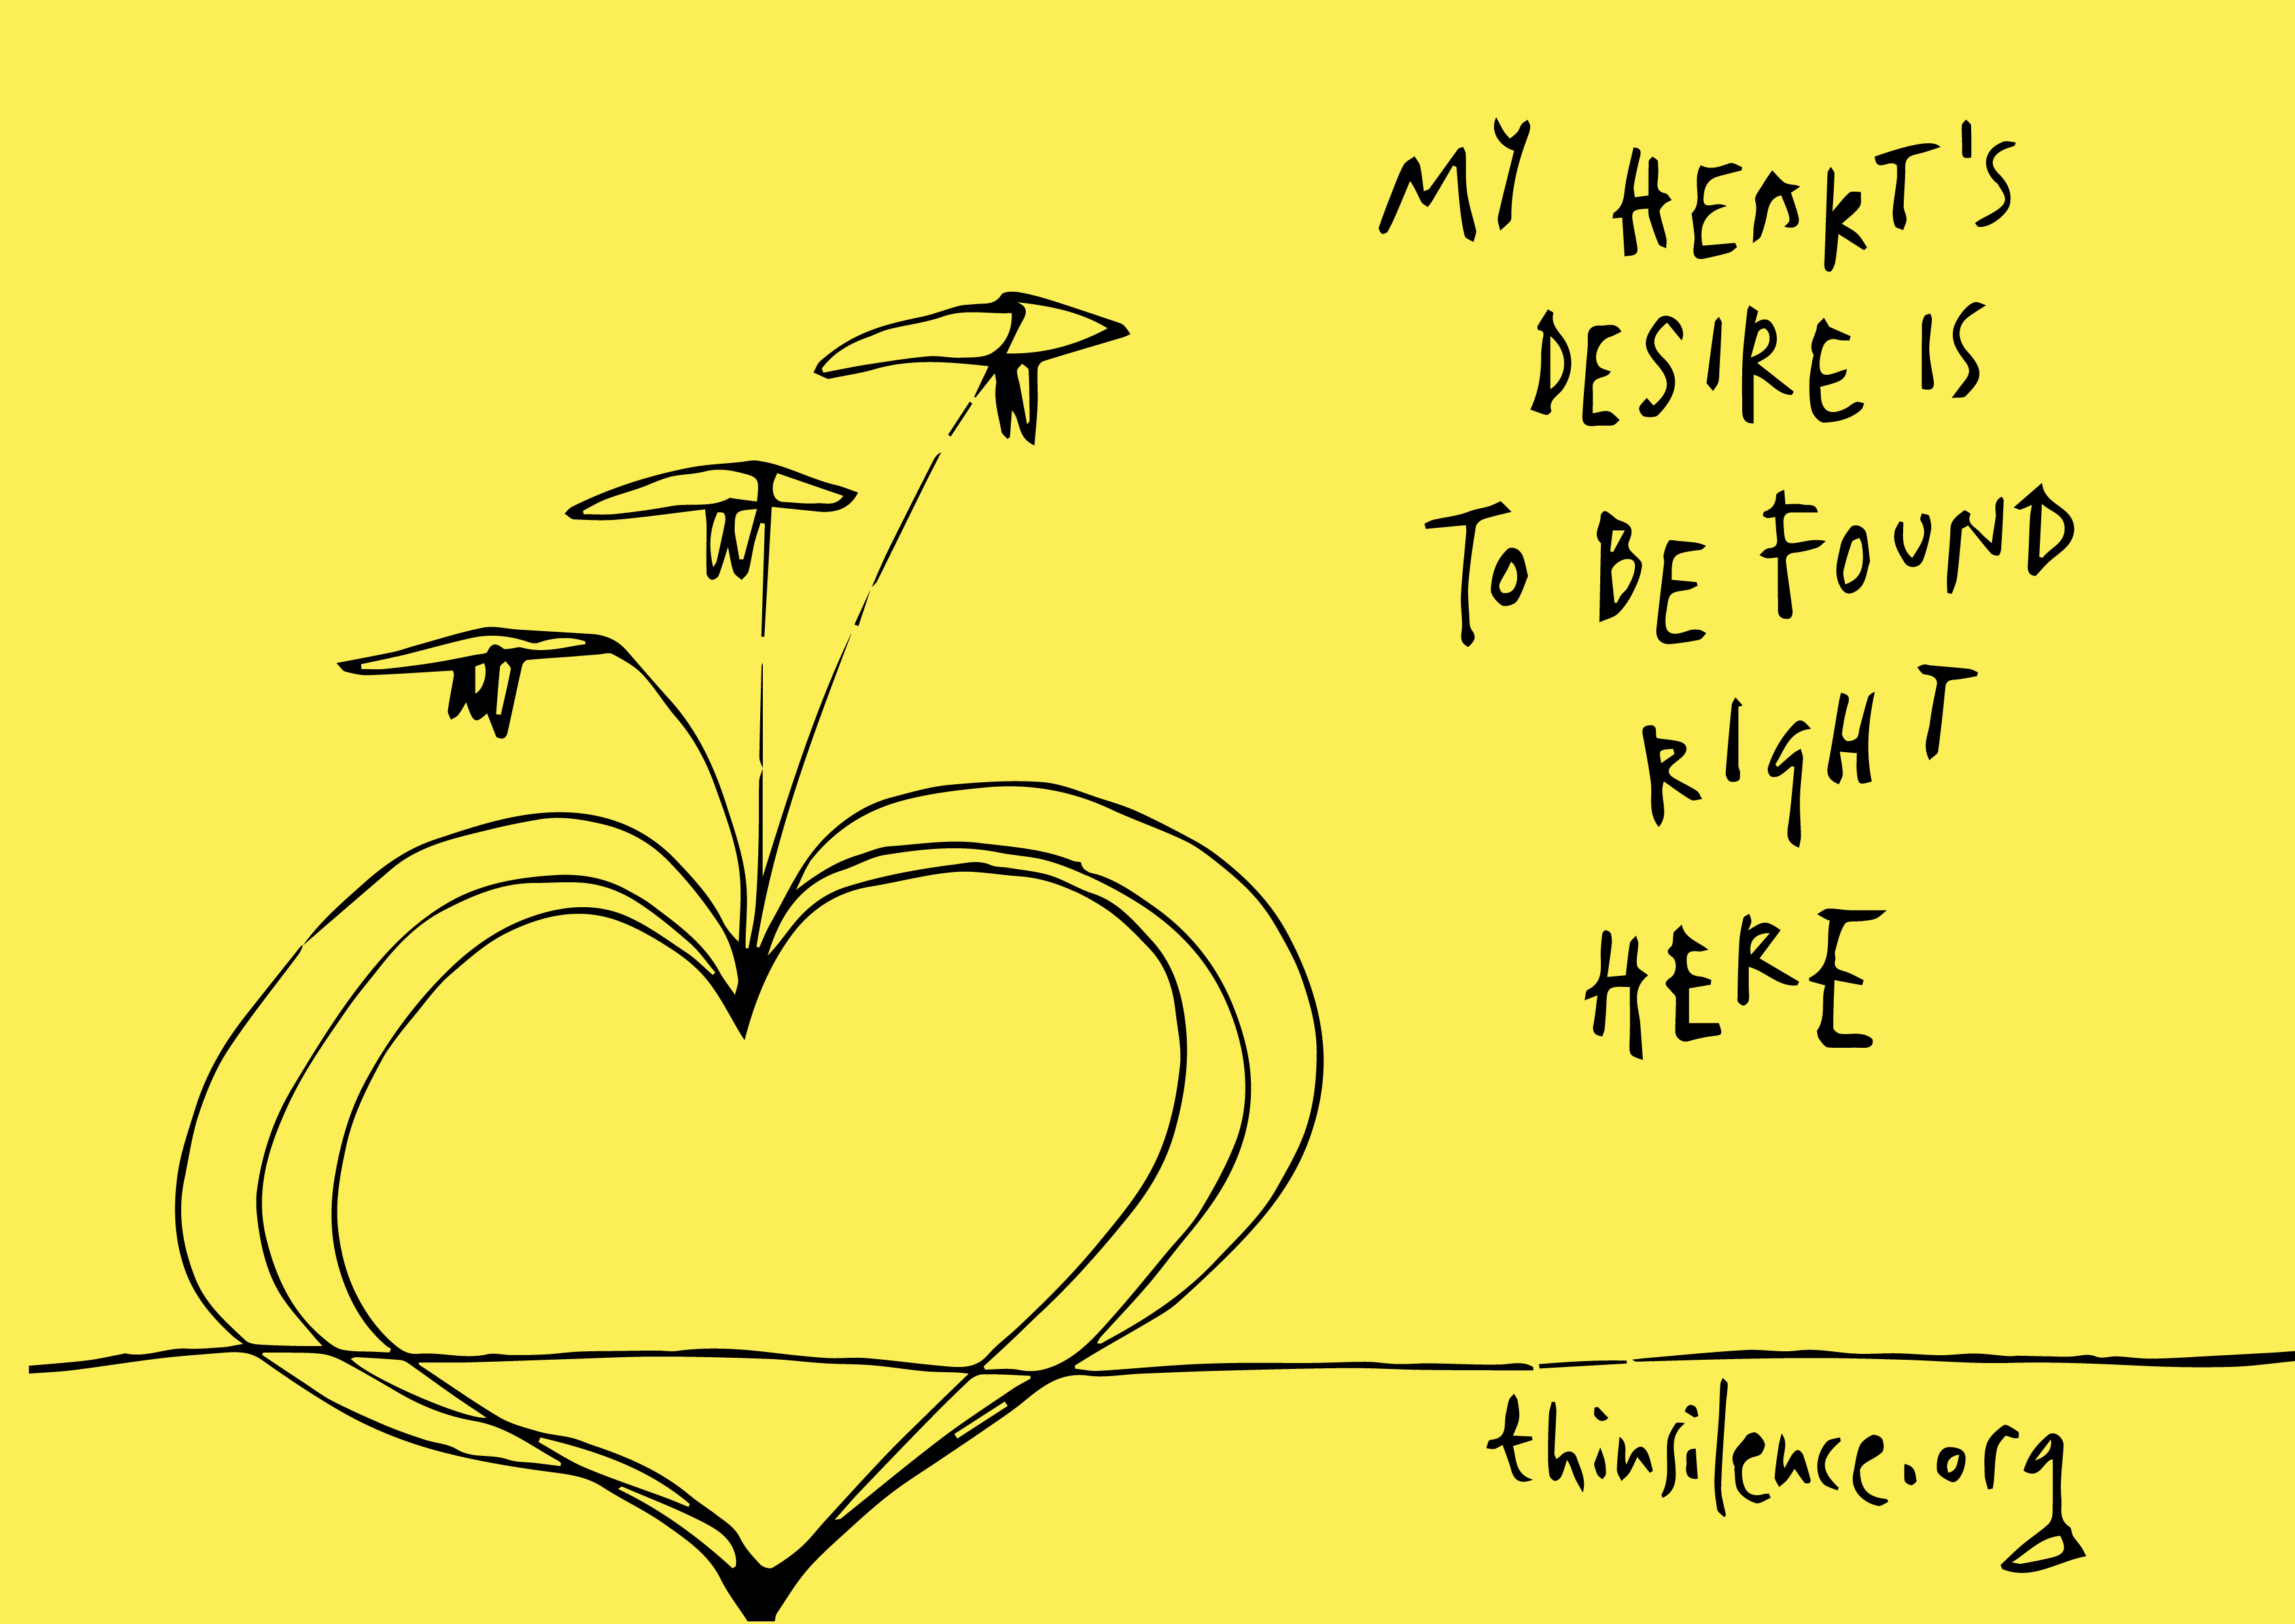 MY HEART'S
DESIRE IS
TO BE FOUND
RIGHT
HERE
thinsilence.org